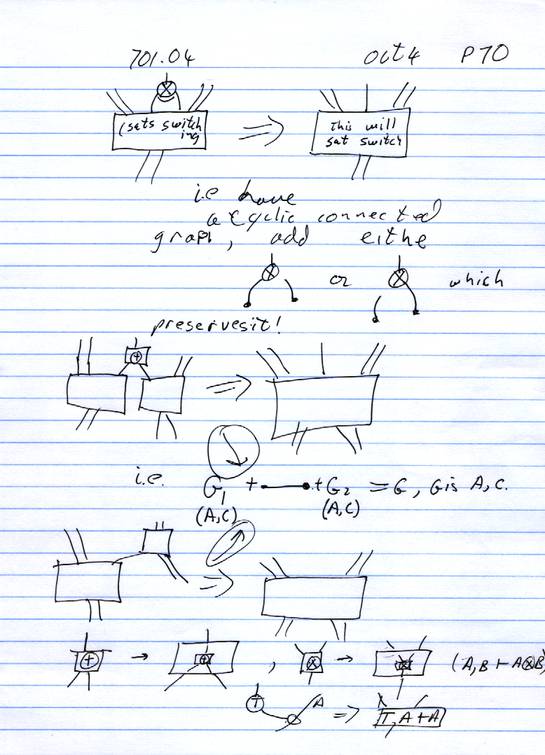 701.04 Oct 4 P70
(sats switch
ing
⇒
this will
sat switch
i.e have
acyclic connected
graph, add eithe
⊗ or ⊗ which
preservesit!
⇒
i.e. G₁ + + G₂ = G, G is A,C.
(A,C) (A,C)
⇒
⊕ → ⊕ , ⊗ → ⊗ (A,B ⊢ A⊗B)
T A ⇒ T, A ⊢ A